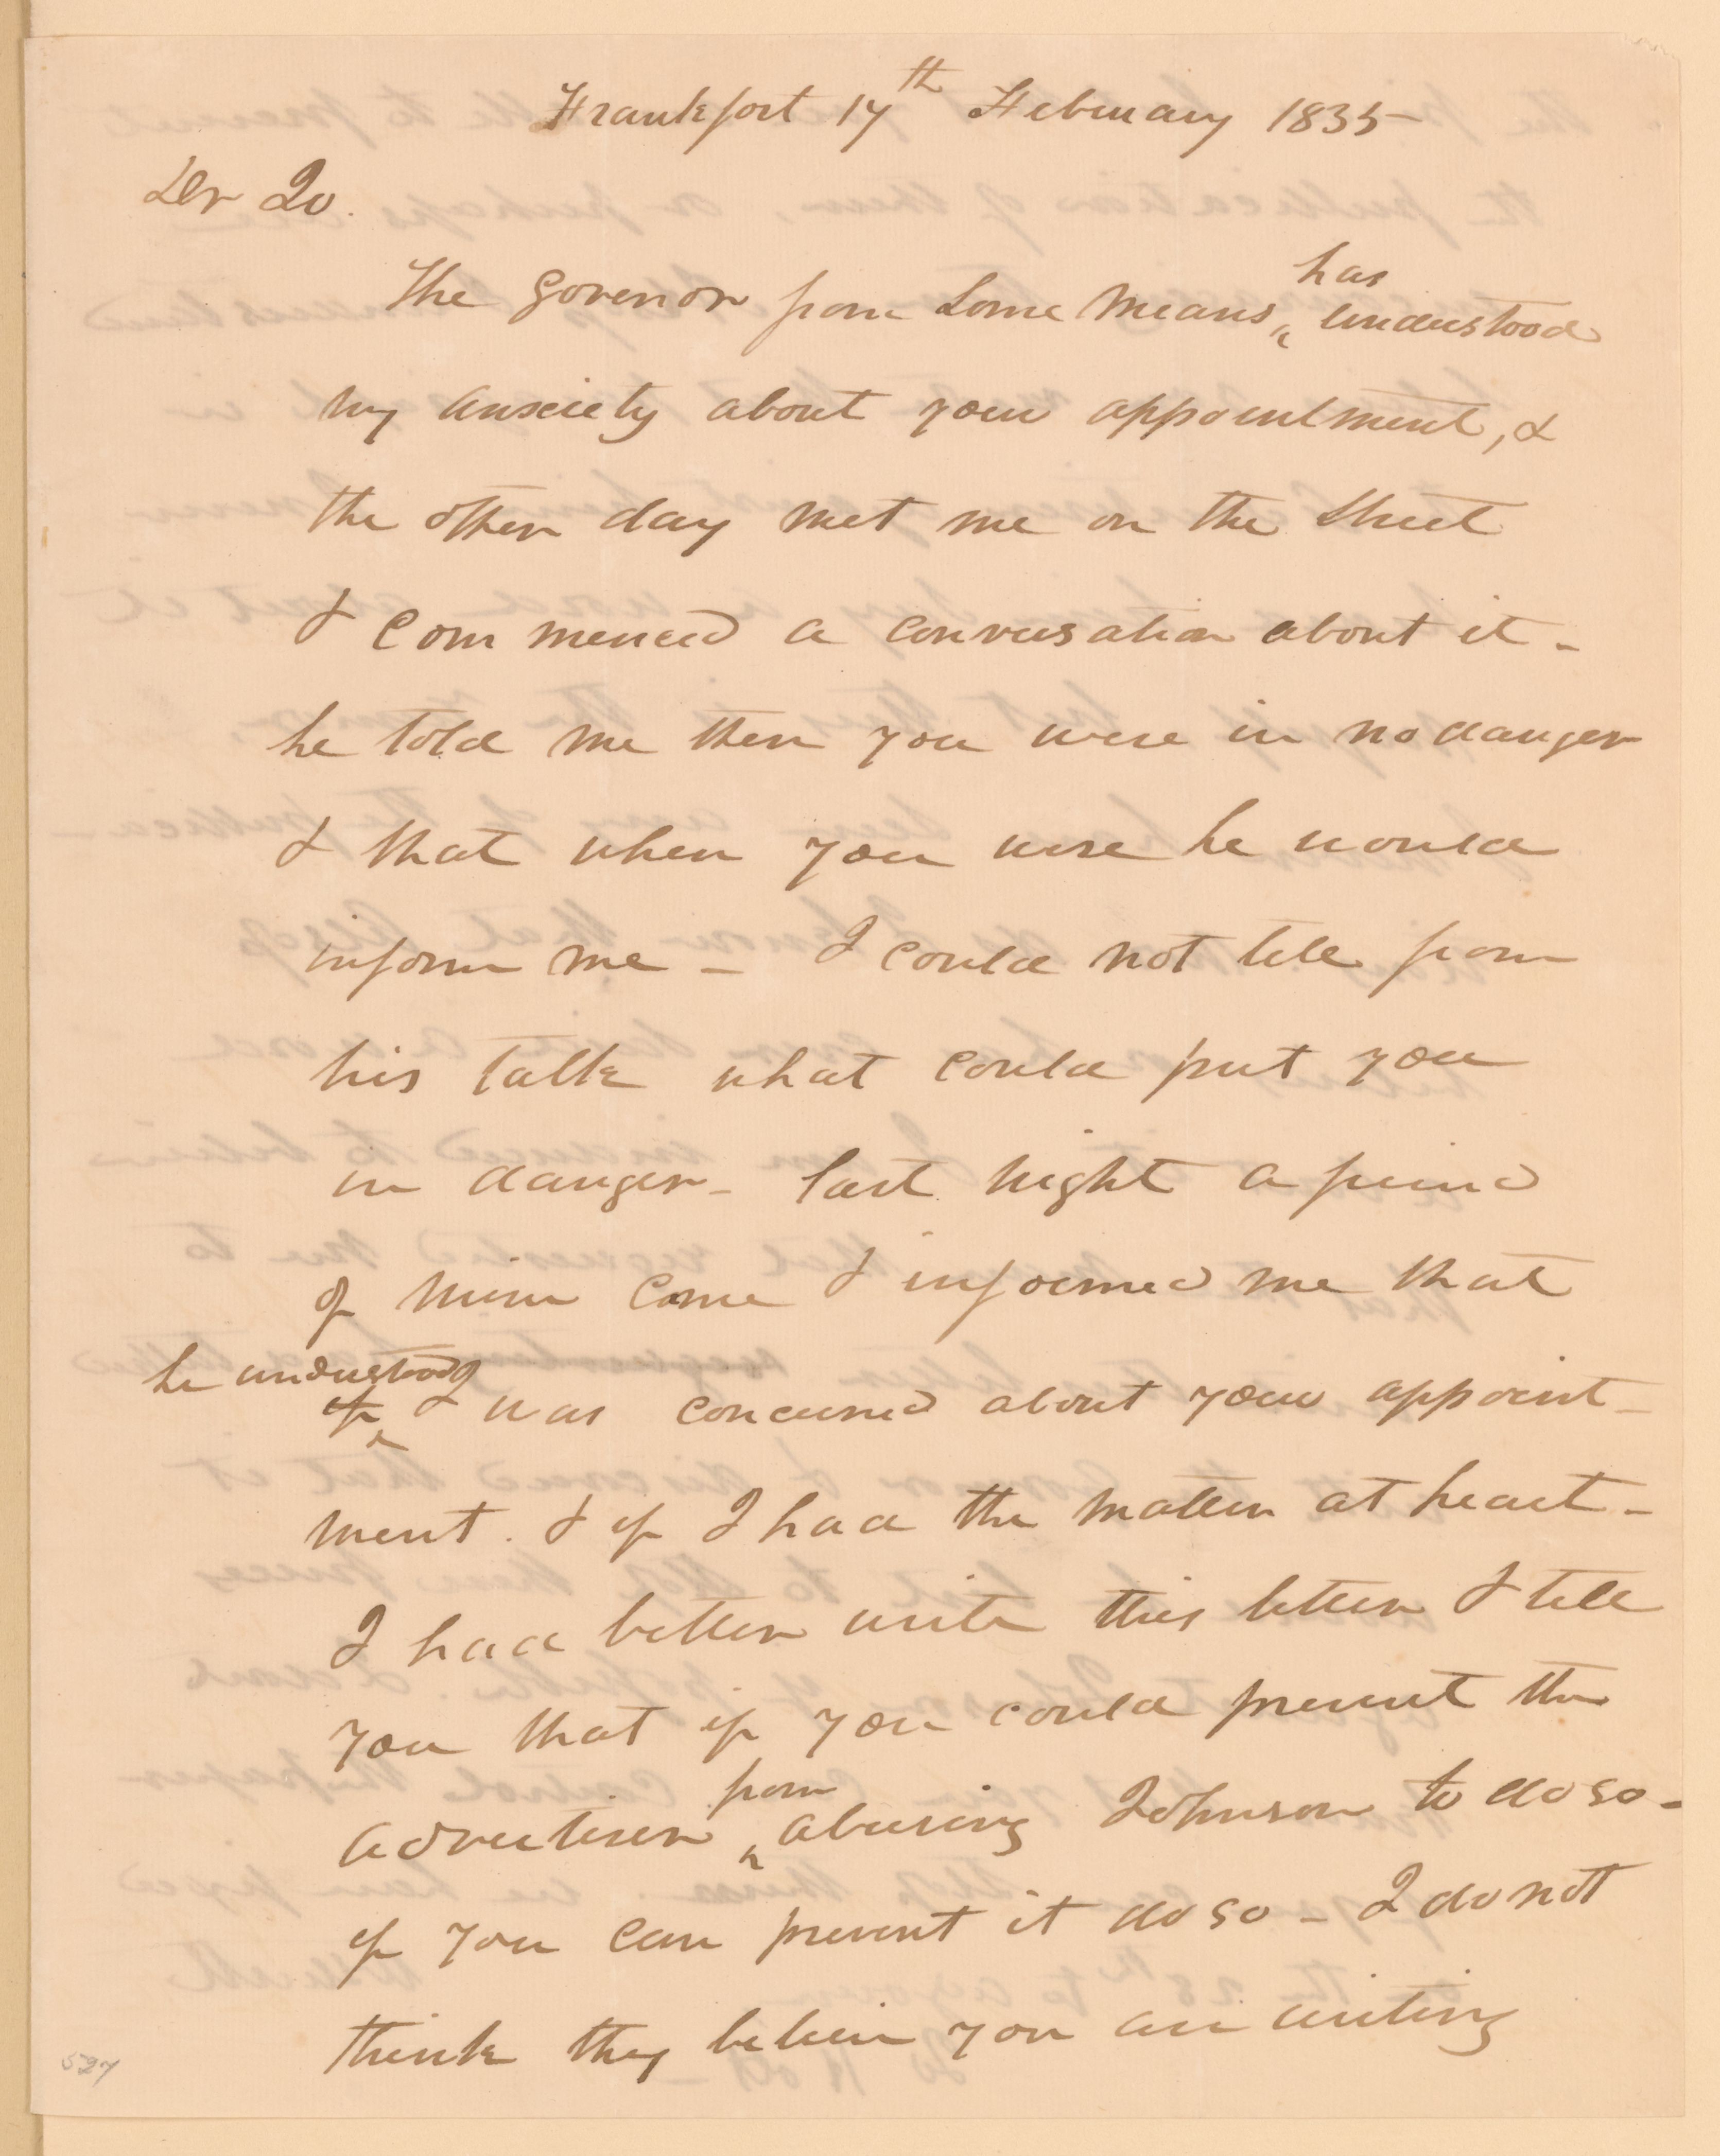 Frankfort 17th February 1835-
Dr Jo.
The Govenor from some means has understood
my anxiety about your appointment, &
the other day met me on the Street
& commenced a conversation about it -
he told me then you were in no danger
& that when you were he would
inform me - I could not tell from
his talk what could put you
in danger - last night a friend
of mine came & informed me that
he understood
if I was concerned about your appoint-
ment. & if I had the matter at heart -
I had better write this letter & tell
you that if you could prevent the
advertiser from abusing Johnson to do so -
if you can prevent it do so - I do not
think they believe you are writing
527